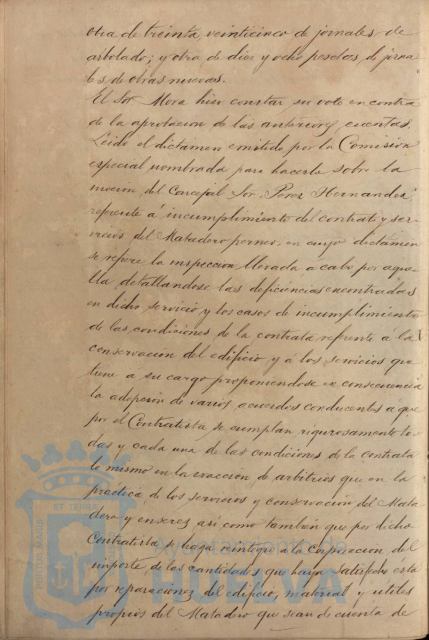 otra de treinta, veinticinco de jornales de
arbolado; y otra de diez y ocho pesetas de jorna-
les de obras nuevas.
El Sor. Mora hizo constar su voto en contra
de la aprobacion de las anteriores cuentas.
Leido el dictamen emitido por la Comision
especial nombrada para hacerlo sobre la
mocion del Concejal Sor. Perez Hernandez
referente á incumplimiento del contrato y ser-
vicios del Matadero perneo en cuyo dictámen
se refiere la inspeccion llevada a cabo por aque-
lla detallandose las deficiencias encontradas
en dicho servicio y los casos de incumplimiento
de las condiciones de la contrata referente á la
conservacion del edificio y á los servicios que
tiene a su cargo proponiendose en consecuencia
la adopcion de varios acuerdos conducentes á que
por el Contratista se cumplan rigurosamente to-
das y cada una de las condiciones de la contrata
lo mismo en la exaccion de arbitrios que en la
práctica de los servicios y conservacion del Mata-
dero y enseres asi como tambien que por dicho
Contratista se haga reintegro a la Corporacion del
importe de las cantidades que haya satisfecho esta
por reparaciones del edificio, material y utiles
propios del Matadero que sean de cuenta de
Ayuntamiento de
HUELVA